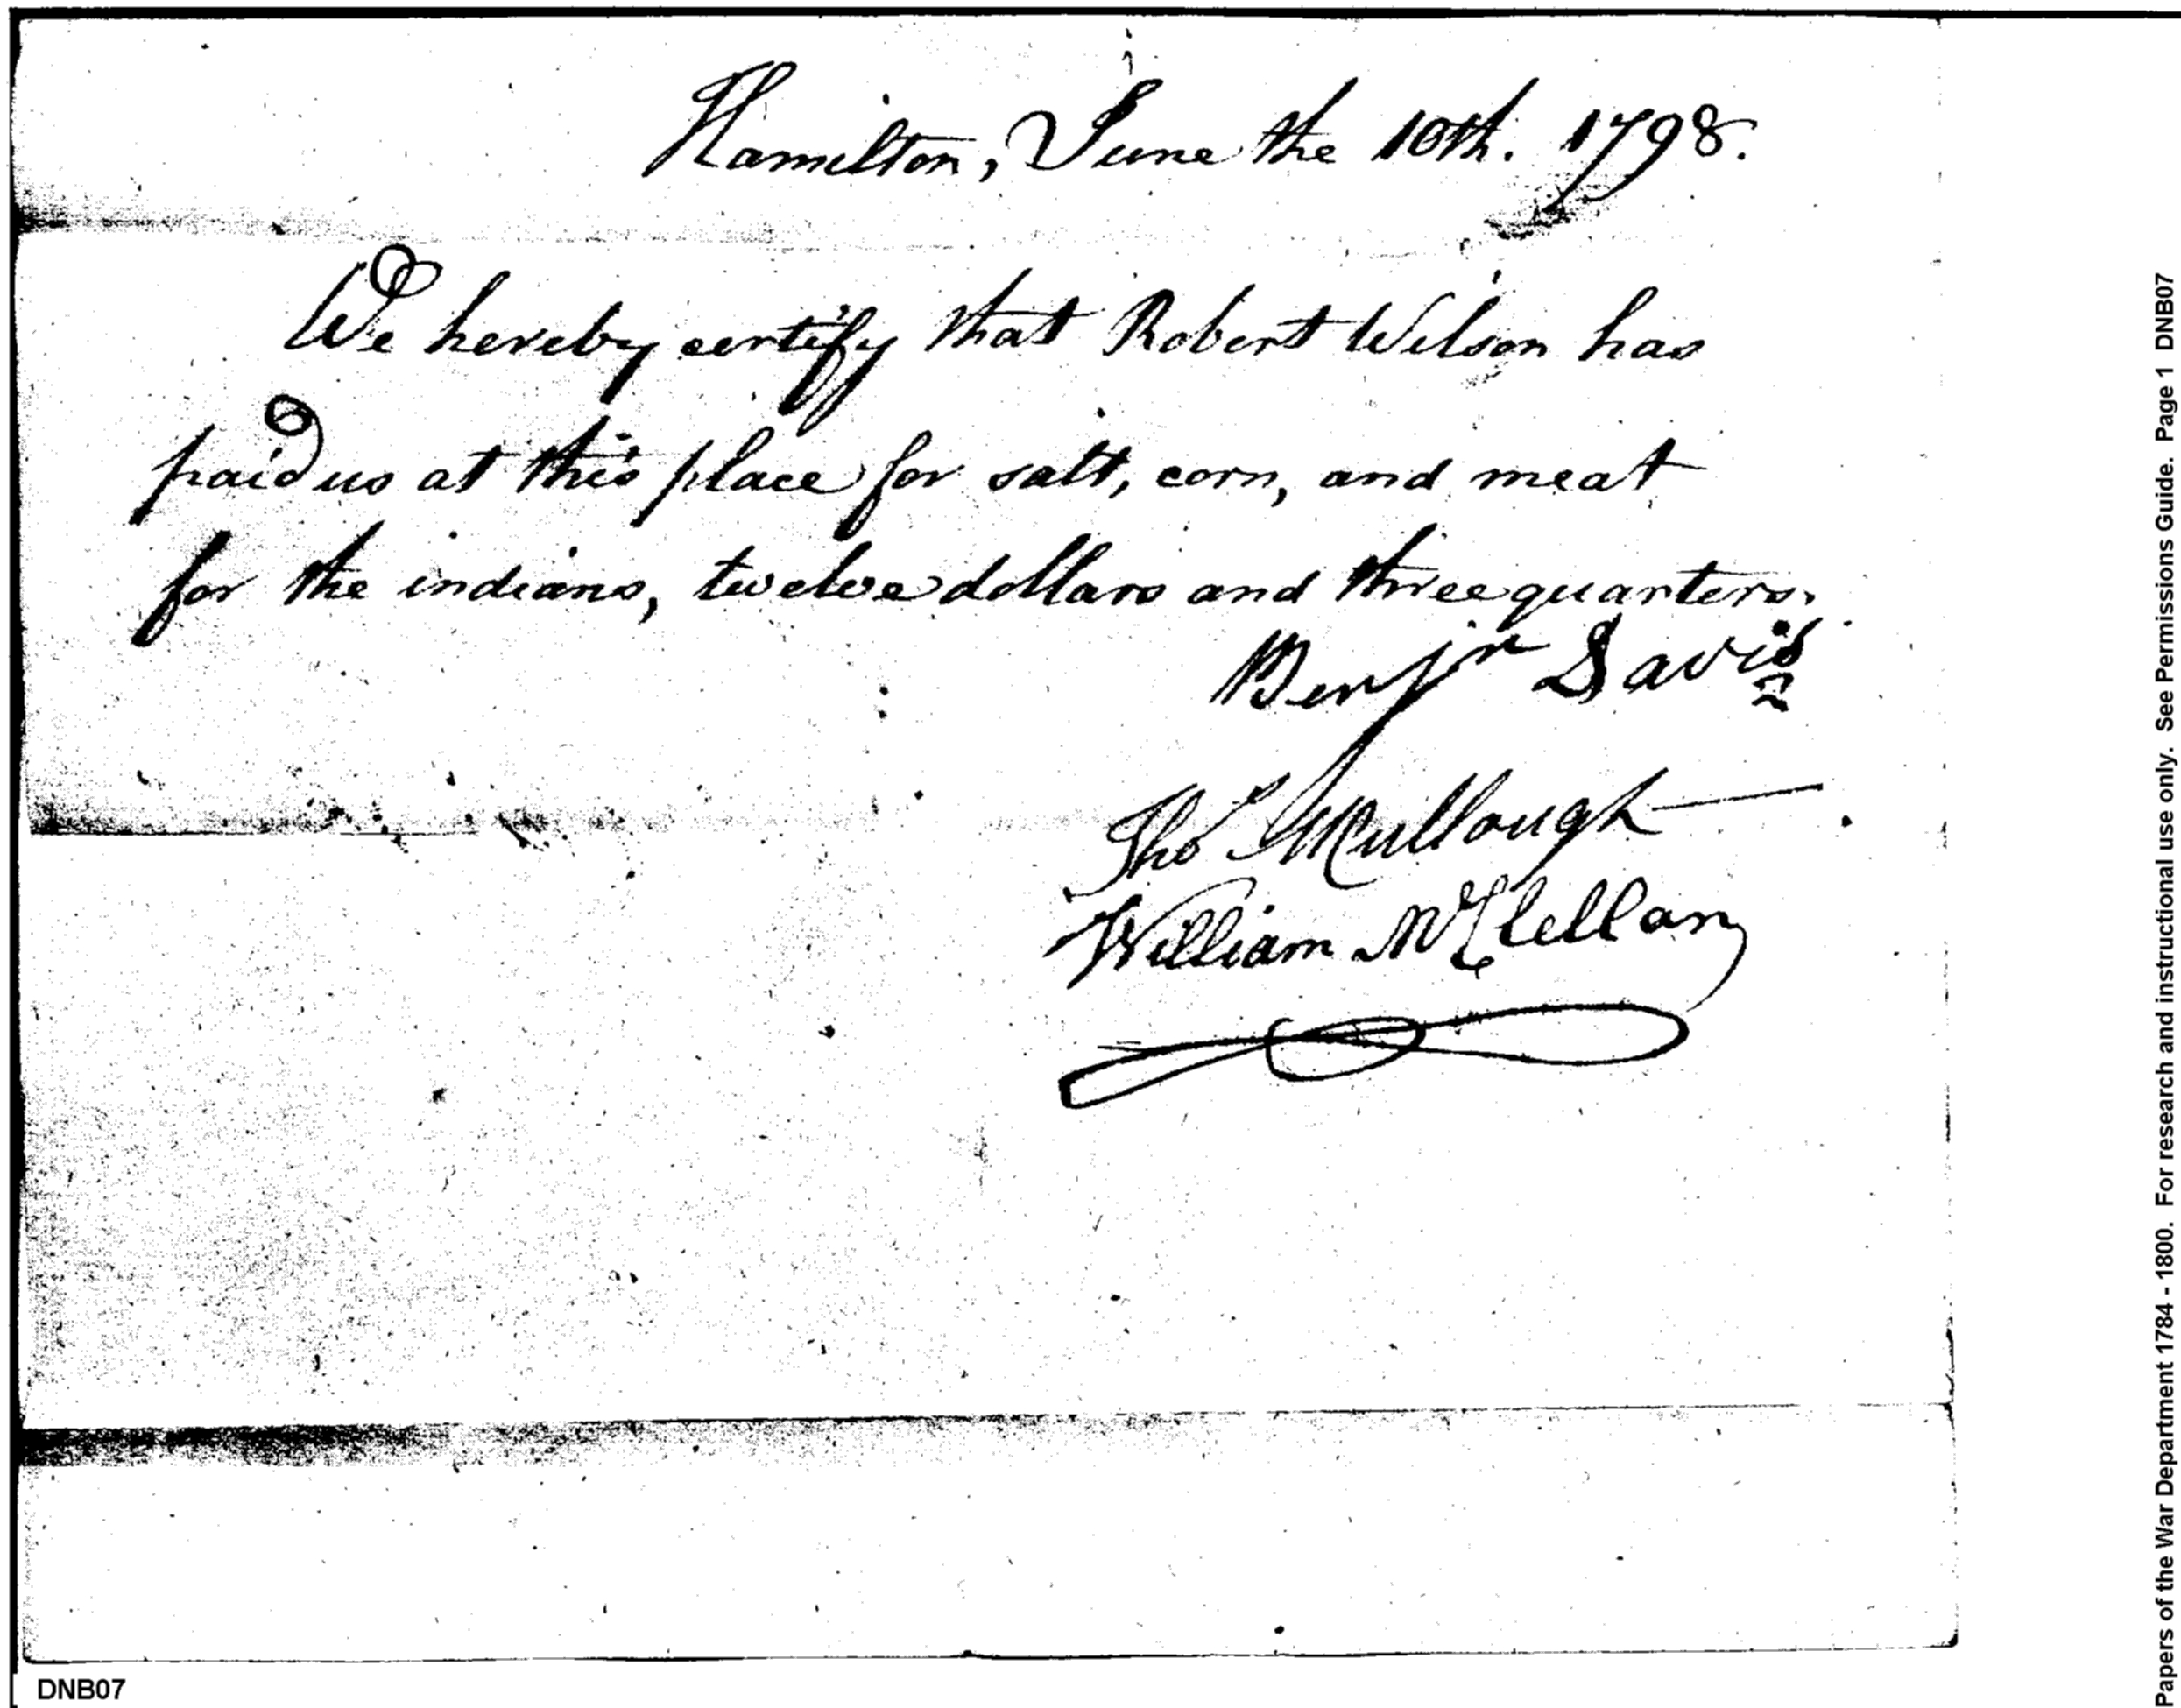 Hamilton, June the 10th. 1798.
We hereby certify that Robert Wilson has
paid us at this place for salt, corn, and meat
for the indians, twelve dollars and three quarters.
Benjn Davis
Thos McCullough
William McClellan
DNB07
Papers of the War Department 1784 - 1800. For research and instructional use only. See Permissions Guide. Page 1 DNB07